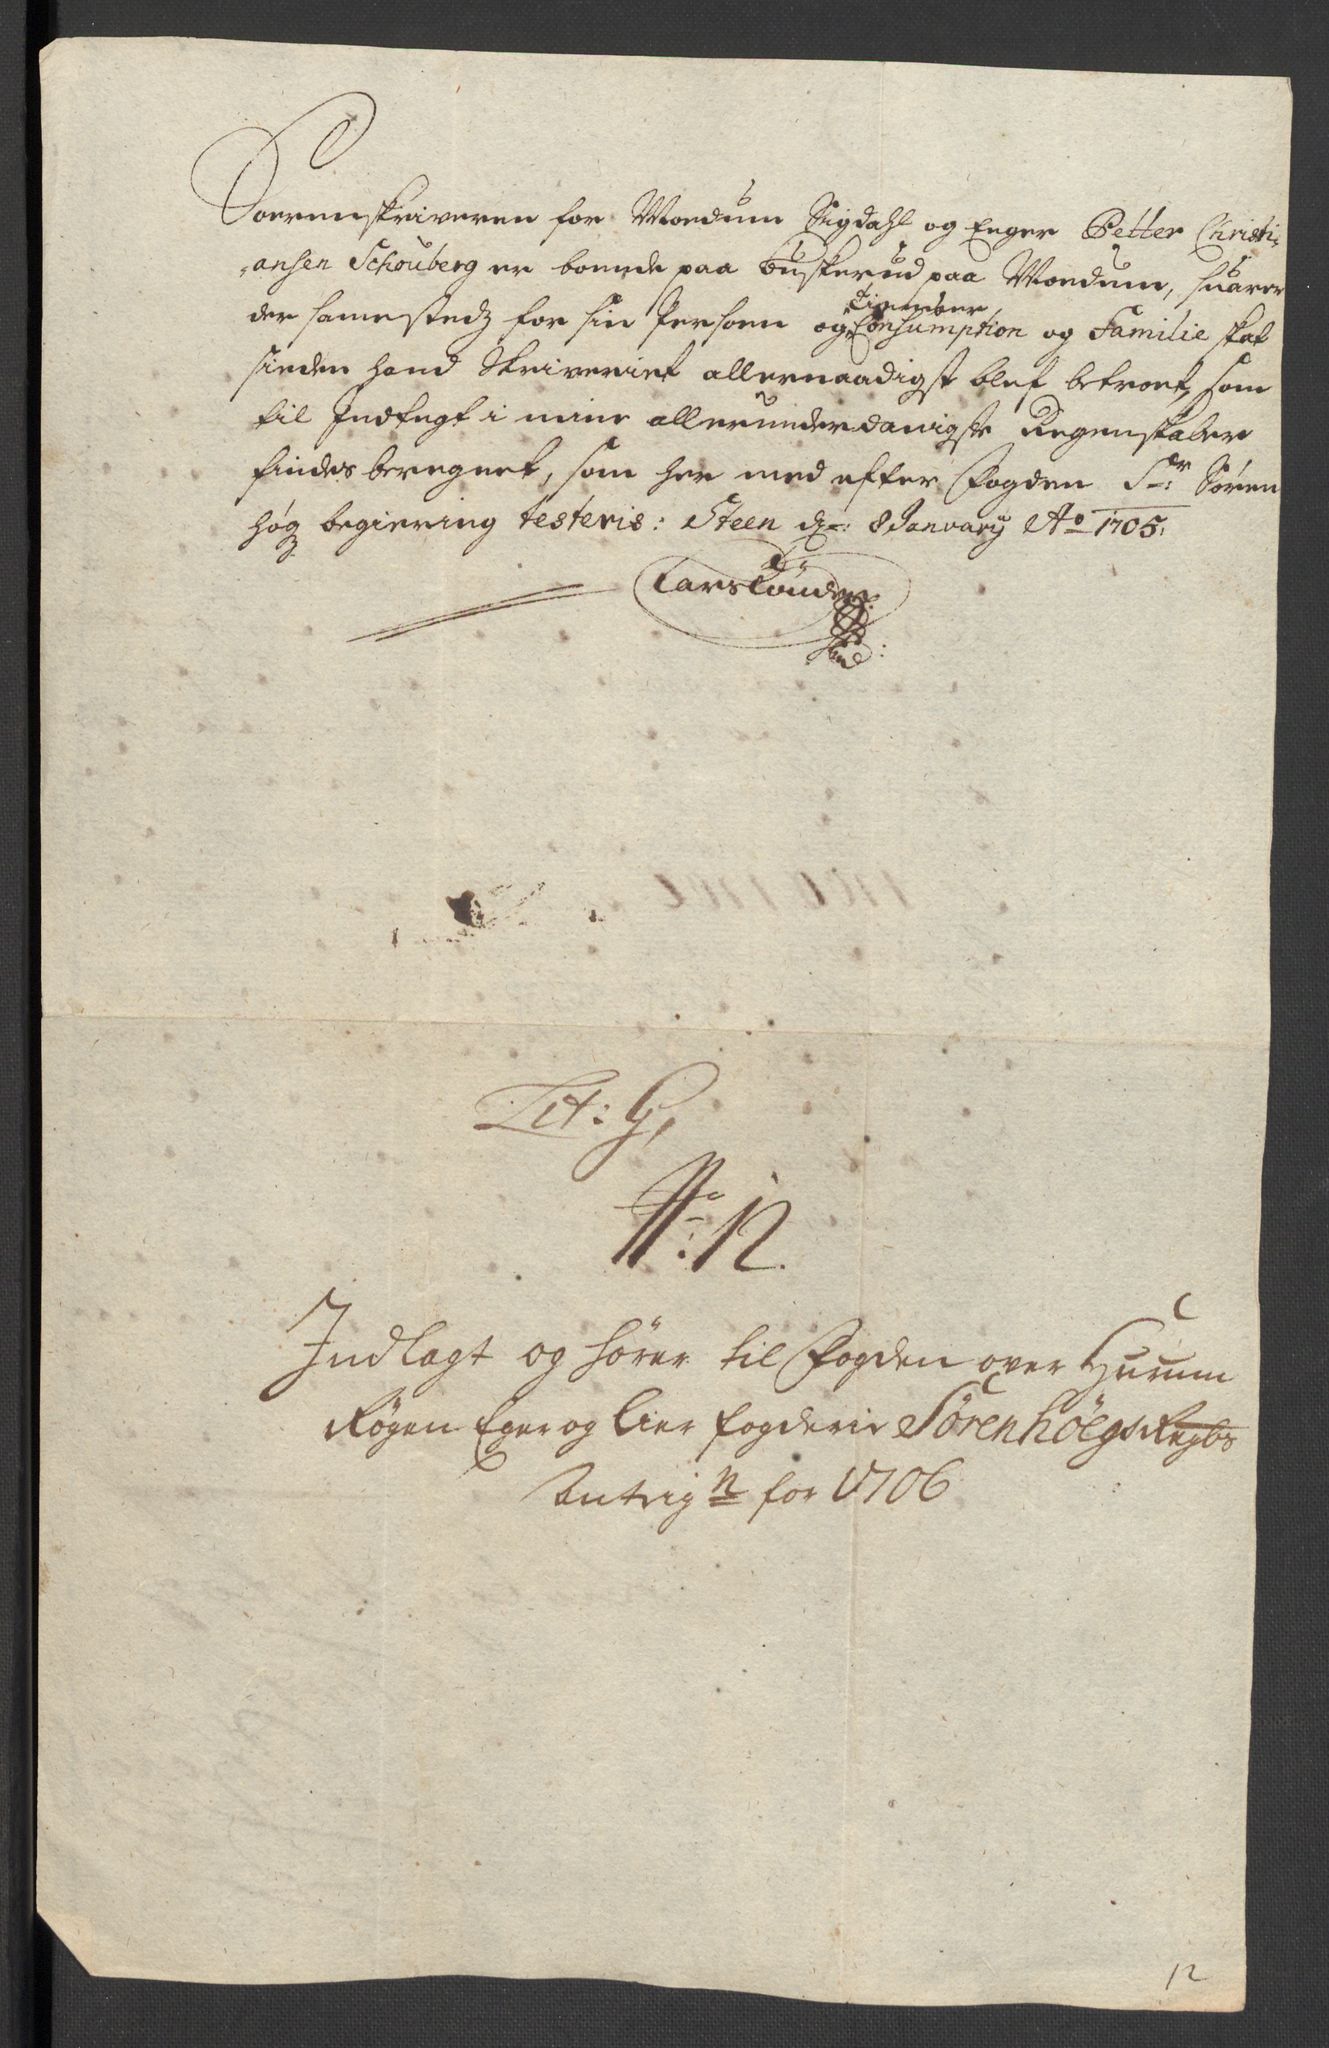 Sorenskriveren for Moedum Sigdahl og Eeger Petter Christi-
-ansen Schouberg er boende paa Buskerud paa Moedum, suarer
der sammestedz for sin Persoen og tienerer Consumption og Familie skat
sieden hand Skriveriet allernaadigst blef betroet, som
til Indtegt i mine allerunderdanigste Regenskaber
findes beregnet, som her med efter Fogden Sr: Søren
Høg begiering testeris: Steen d: 8 January Ao 1705,
Lars Tönder
Lit: G,
No: 12.
Indlagt og hörer til Fogden over Hurum
Røgen Eger og Lier fogderie Søren Höegs Regbs
Antegn for 1706
12